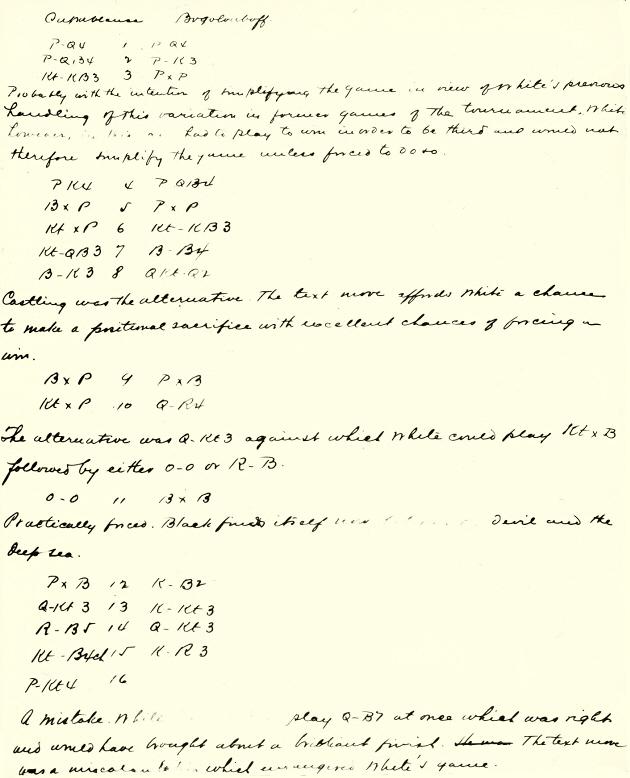 Capablanca Bogoljuboff
P-Q4 1 P-Q4
P-QB4 2 P-K3
Kt-KB3 3 P x P
Probably with the intention of simplifying the game in view of White's previous
handling of this variation in former games of the tournament. White
however, had to play to win in order to be third and would not
therefore simplify the game unless forced to do so.
P K4 4 P QB4
B x P 5 P x P
Kt x P 6 Kt-KB3
Kt-QB3 7 B-B4
B-K3 8 QKt-Q2
Castling was the alternative. The text move affords White a chance
to make a positional sacrifice with excellent chances of forcing a
win.
B x P 9 P x B
Kt x P 10 Q-R4
The alternative was Q-Kt3 against which White could play Kt x B
followed by either 0-0 or R-B.
0-0 11 B x B
Practically forced. Black finds itself devil and the
deep sea.
P x B 12 K-B2
Q-Kt 3 13 K-Kt3
R-B5 14 Q-Kt3
Kt-B4ch 15 K-R3
P-Kt4 16
A mistake. White play Q-B7 at once which was right
and would have brought about a brilliant finish. The text move
was a which endangered White's game.